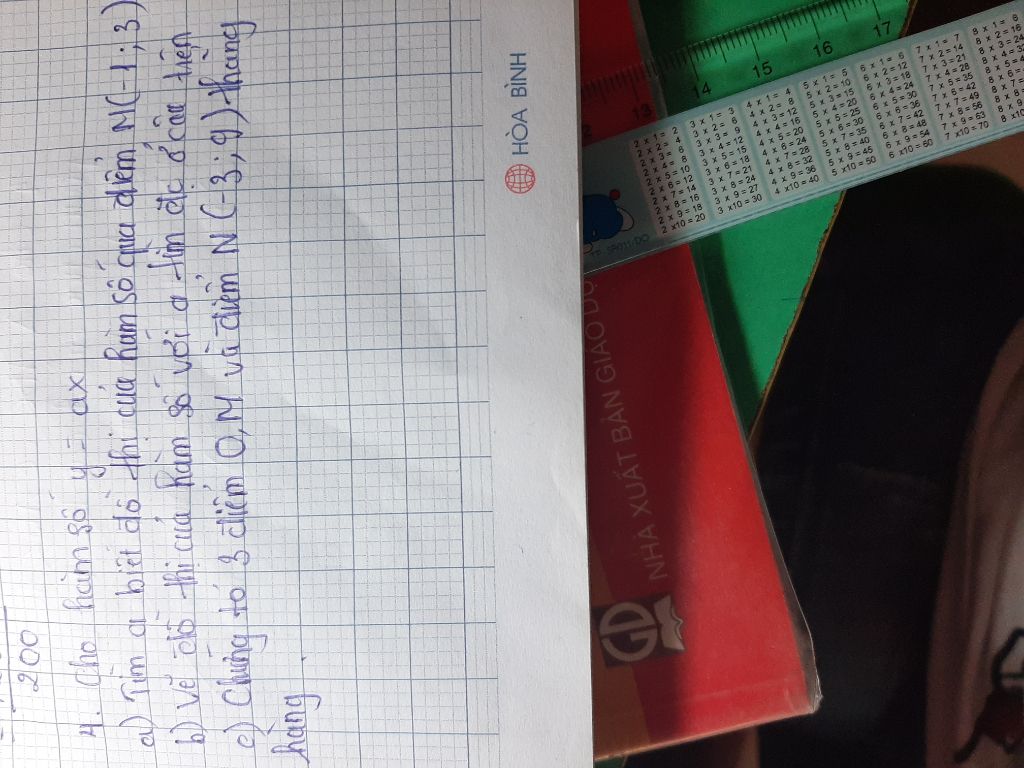 200
4. Cho hàm số y = ax
a) Tìm a biết đồ thị của hàm số qua điểm M(-1; 3)
b) Vẽ đồ thị của hàm số với a tìm đc ở câu trên
c) Chứng tỏ 3 điểm O, M và điểm N(-3; 9) thẳng
hàng.
HÒA BÌNH
NHÀ XUẤT BẢN GIÁO DỤ
GD
13 14 15 16 17
2 x 1 = 2
2 x 2 = 4
2 x 3 = 6
2 x 4 = 8
2 x 5 = 10
2 x 6 = 12
2 x 7 = 14
2 x 8 = 16
2 x 9 = 18
2 x10 = 20
3 x 1 = 3
3 x 2 = 6
3 x 3 = 9
3 x 4 = 12
3 x 5 = 15
3 x 6 = 18
3 x 7 = 21
3 x 8 = 24
3 x 9 = 27
3 x10 = 30
4 x 1 = 4
4 x 2 = 8
4 x 3 = 12
4 x 4 = 16
4 x 5 = 20
4 x 6 = 24
4 x 7 = 28
4 x 8 = 32
4 x 9 = 36
4 x10 = 40
5 x 1 = 5
5 x 2 = 10
5 x 3 = 15
5 x 4 = 20
5 x 5 = 25
5 x 6 = 30
5 x 7 = 35
5 x 8 = 40
5 x 9 = 45
5 x10 = 50
6 x 1 = 6
6 x 2 = 12
6 x 3 = 18
6 x 4 = 24
6 x 5 = 30
6 x 6 = 36
6 x 7 = 42
6 x 8 = 48
6 x 9 = 54
6 x10 = 60
7 x 1 = 7
7 x 2 = 14
7 x 3 = 21
7 x 4 = 28
7 x 5 = 35
7 x 6 = 42
7 x 7 = 49
7 x 8 = 56
7 x 9 = 63
7 x10 = 70
8 x 1 = 8
8 x 2 = 16
8 x 3 = 24
8 x 4 = 32
8 x 5 = 4
8 x 6 =
8 x 7
8 x 8
8 x 9
8 x10